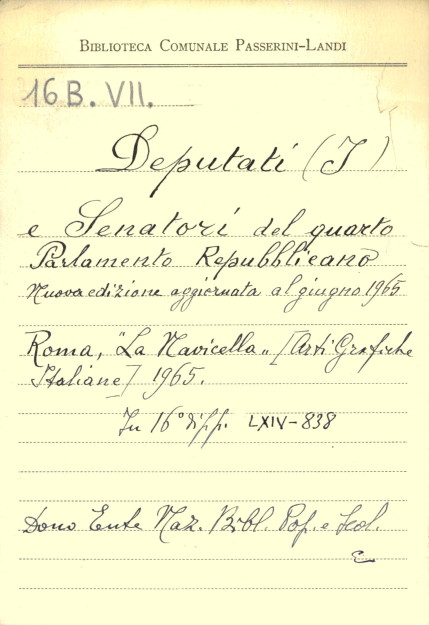 BIBLIOTECA COMUNALE PASSERINI-LANDI
16 B. VII.
Deputati (I)
e Senatori del quarto
Parlamento Repubblicano
Nuova edizione aggiornata al giugno 1965
Roma, "La Navicella" [Arti Grafiche
Italiane] 1965.
In 16° di pp. LXIV-838
Dono Ente Naz. Bibl. Pop. e Scol.